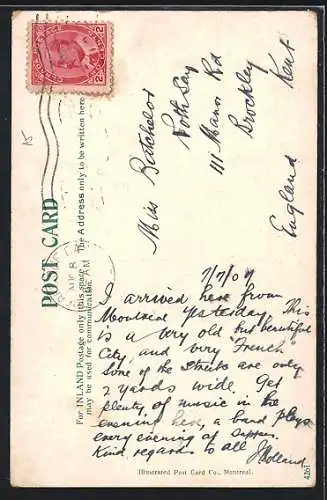 CANADA POSTAGE
2 CENTS 2
15
POST CARD
For INLAND Postage only this space
may be used for communication.
The Address only to be written here
Miss Batchelor
Roth Say
111 Manor Rd
Brockley
Kent
England
7/7/07
I arrived here from
Montreal yesterday. This
is a very old but beautiful
City, and very "French
Some of the streets are only
2 yards wide. Get
plenty of music in the
evening here, a band plays
every evening at supper.
Kind regards to all
Holland
Illustrated Post Card Co., Montreal.
4261